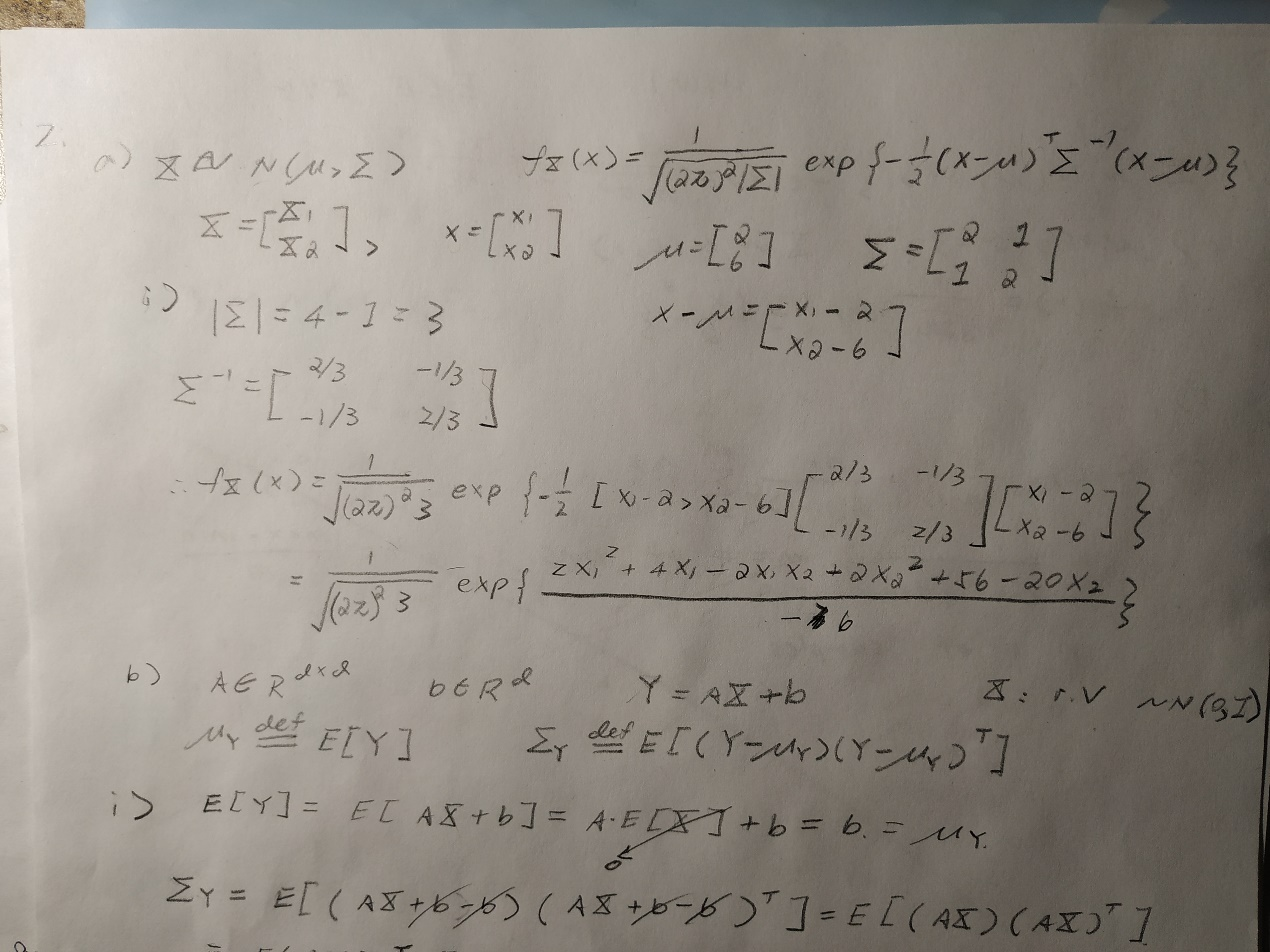 2.
a) X ~ N(μ, Σ) fX(x) = 1/√((2π)²|Σ|) exp{-1/2 (x-μ)ᵀ Σ⁻¹ (x-μ)}
X = [X₁ X₂], x = [x₁ x₂] μ = [2 6] Σ = [2 1 1 2]
i) |Σ| = 4 - 1 = 3 x - μ = [x₁ - 2 x₂ - 6]
Σ⁻¹ = [2/3 -1/3 -1/3 2/3]
∴ fX(x) = 1/√((2π)² 3) exp {-1/2 [x₁-2, x₂-6] [2/3 -1/3 -1/3 2/3] [x₁ - 2 x₂ - 6]}
= 1/√((2π)² 3) exp{ (2x₁² + 4x₁ - 2x₁x₂ + 2x₂² + 56 - 20x₂) / -6 }
b) A ∈ R^(d×d) b ∈ R^d Y = AX + b X : r.V ~N(0,I)
μ_Y def= E[Y] Σ_Y def= E[(Y-μ_Y)(Y-μ_Y)ᵀ]
i) E[Y] = E[AX + b] = A·E[X] + b = b. = μ_Y.
0
Σ_Y = E[(AX+b-b)(AX+b-b)ᵀ] = E[(AX)(AX)ᵀ]